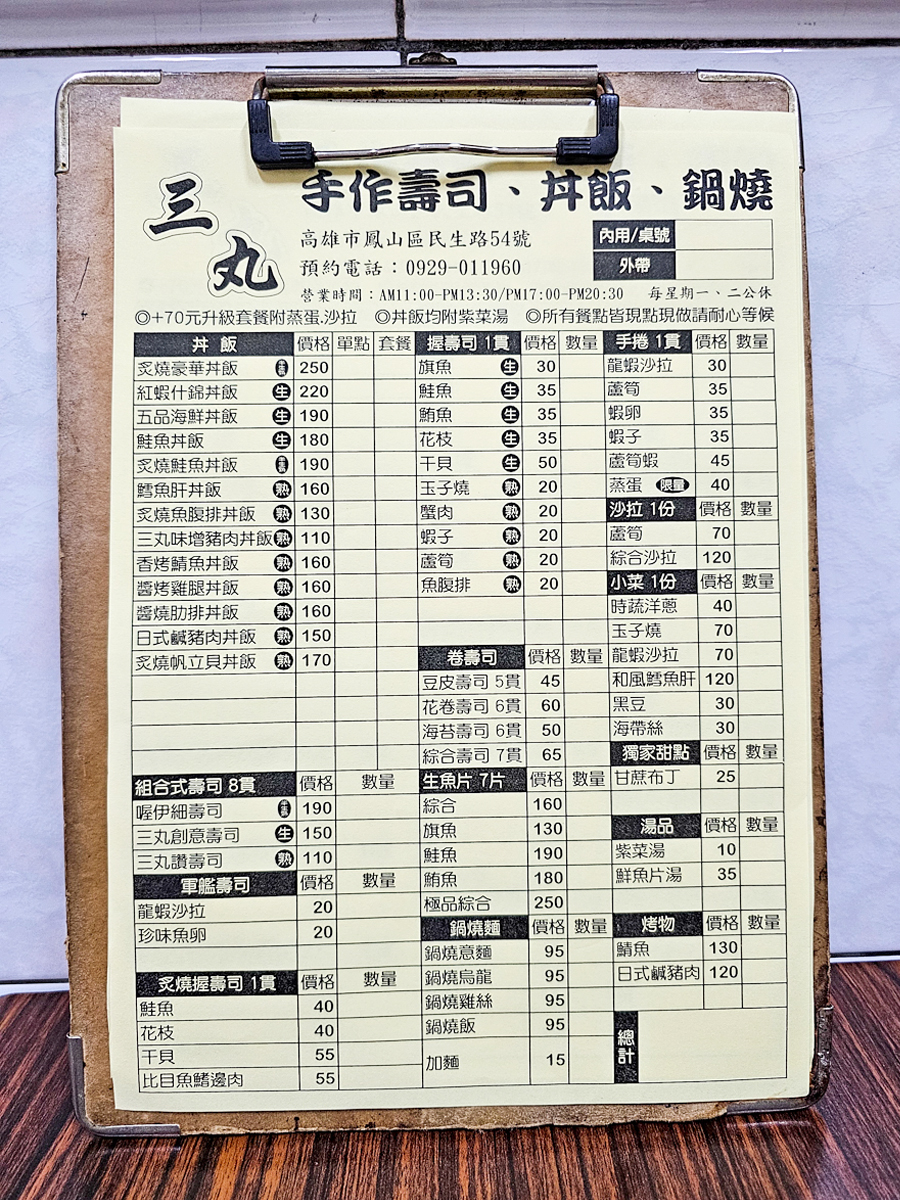 三丸
手作壽司、丼飯、鍋燒
高雄市鳳山區民生路54號
預約電話：0929-011960
內用/桌號
外帶
營業時間：AM11:00-PM13:30/PM17:00-PM20:30 每星期一、二公休
◎+70元升級套餐附蒸蛋.沙拉 ◎丼飯均附紫菜湯 ◎所有餐點皆現點現做請耐心等候
丼 飯 價格 單點 套餐
炙燒豪華丼飯 250
紅蝦什錦丼飯 生 220
五品海鮮丼飯 生 190
鮭魚丼飯 生 180
炙燒鮭魚丼飯 190
鱈魚肝丼飯 熟 160
炙燒魚腹排丼飯 熟 130
三丸味增豬肉丼飯 熟 110
香烤鯖魚丼飯 熟 160
醬烤雞腿丼飯 熟 160
醬燒肋排丼飯 熟 160
日式鹹豬肉丼飯 熟 150
炙燒帆立貝丼飯 熟 170
組合式壽司 8貫 價格 數量
喔伊細壽司 190
三丸創意壽司 生 150
三丸讚壽司 熟 110
軍艦壽司 價格 數量
龍蝦沙拉 20
珍味魚卵 20
炙燒握壽司 1貫 價格 數量
鮭魚 40
花枝 40
干貝 55
比目魚鰭邊肉 55
握壽司 1貫 價格 數量
旗魚 生 30
鮭魚 生 35
鮪魚 生 35
花枝 生 35
干貝 生 50
玉子燒 熟 20
蟹肉 熟 20
蝦子 熟 20
蘆筍 熟 20
魚腹排 熟 20
卷壽司 價格 數量
豆皮壽司 5貫 45
花卷壽司 6貫 60
海苔壽司 6貫 50
綜合壽司 7貫 65
生魚片 7片 價格 數量
綜合 160
旗魚 130
鮭魚 190
鮪魚 180
極品綜合 250
鍋燒麵 價格 數量
鍋燒意麵 95
鍋燒烏龍 95
鍋燒雞絲 95
鍋燒飯 95
加麵 15
手捲 1貫 價格 數量
龍蝦沙拉 30
蘆筍 35
蝦卵 35
蝦子 35
蘆筍蝦 45
蒸蛋 限量 40
沙拉 1份 價格 數量
蘆筍 70
綜合沙拉 120
小菜 1份 價格 數量
時蔬洋蔥 40
玉子燒 70
龍蝦沙拉 70
和風鱈魚肝 120
黑豆 30
海帶絲 30
獨家甜點 價格 數量
甘蔗布丁 25
湯品 價格 數量
紫菜湯 10
鮮魚片湯 35
烤物 價格 數量
鯖魚 130
日式鹹豬肉 120
總計